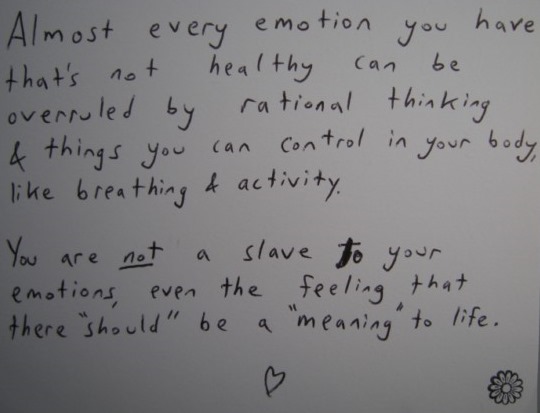 Almost every emotion you have
that's not healthy can be
overruled by rational thinking
& things you can control in your body,
like breathing & activity.
You are not a slave to your
emotions, even the feeling that
there "should" be a "meaning" to life.